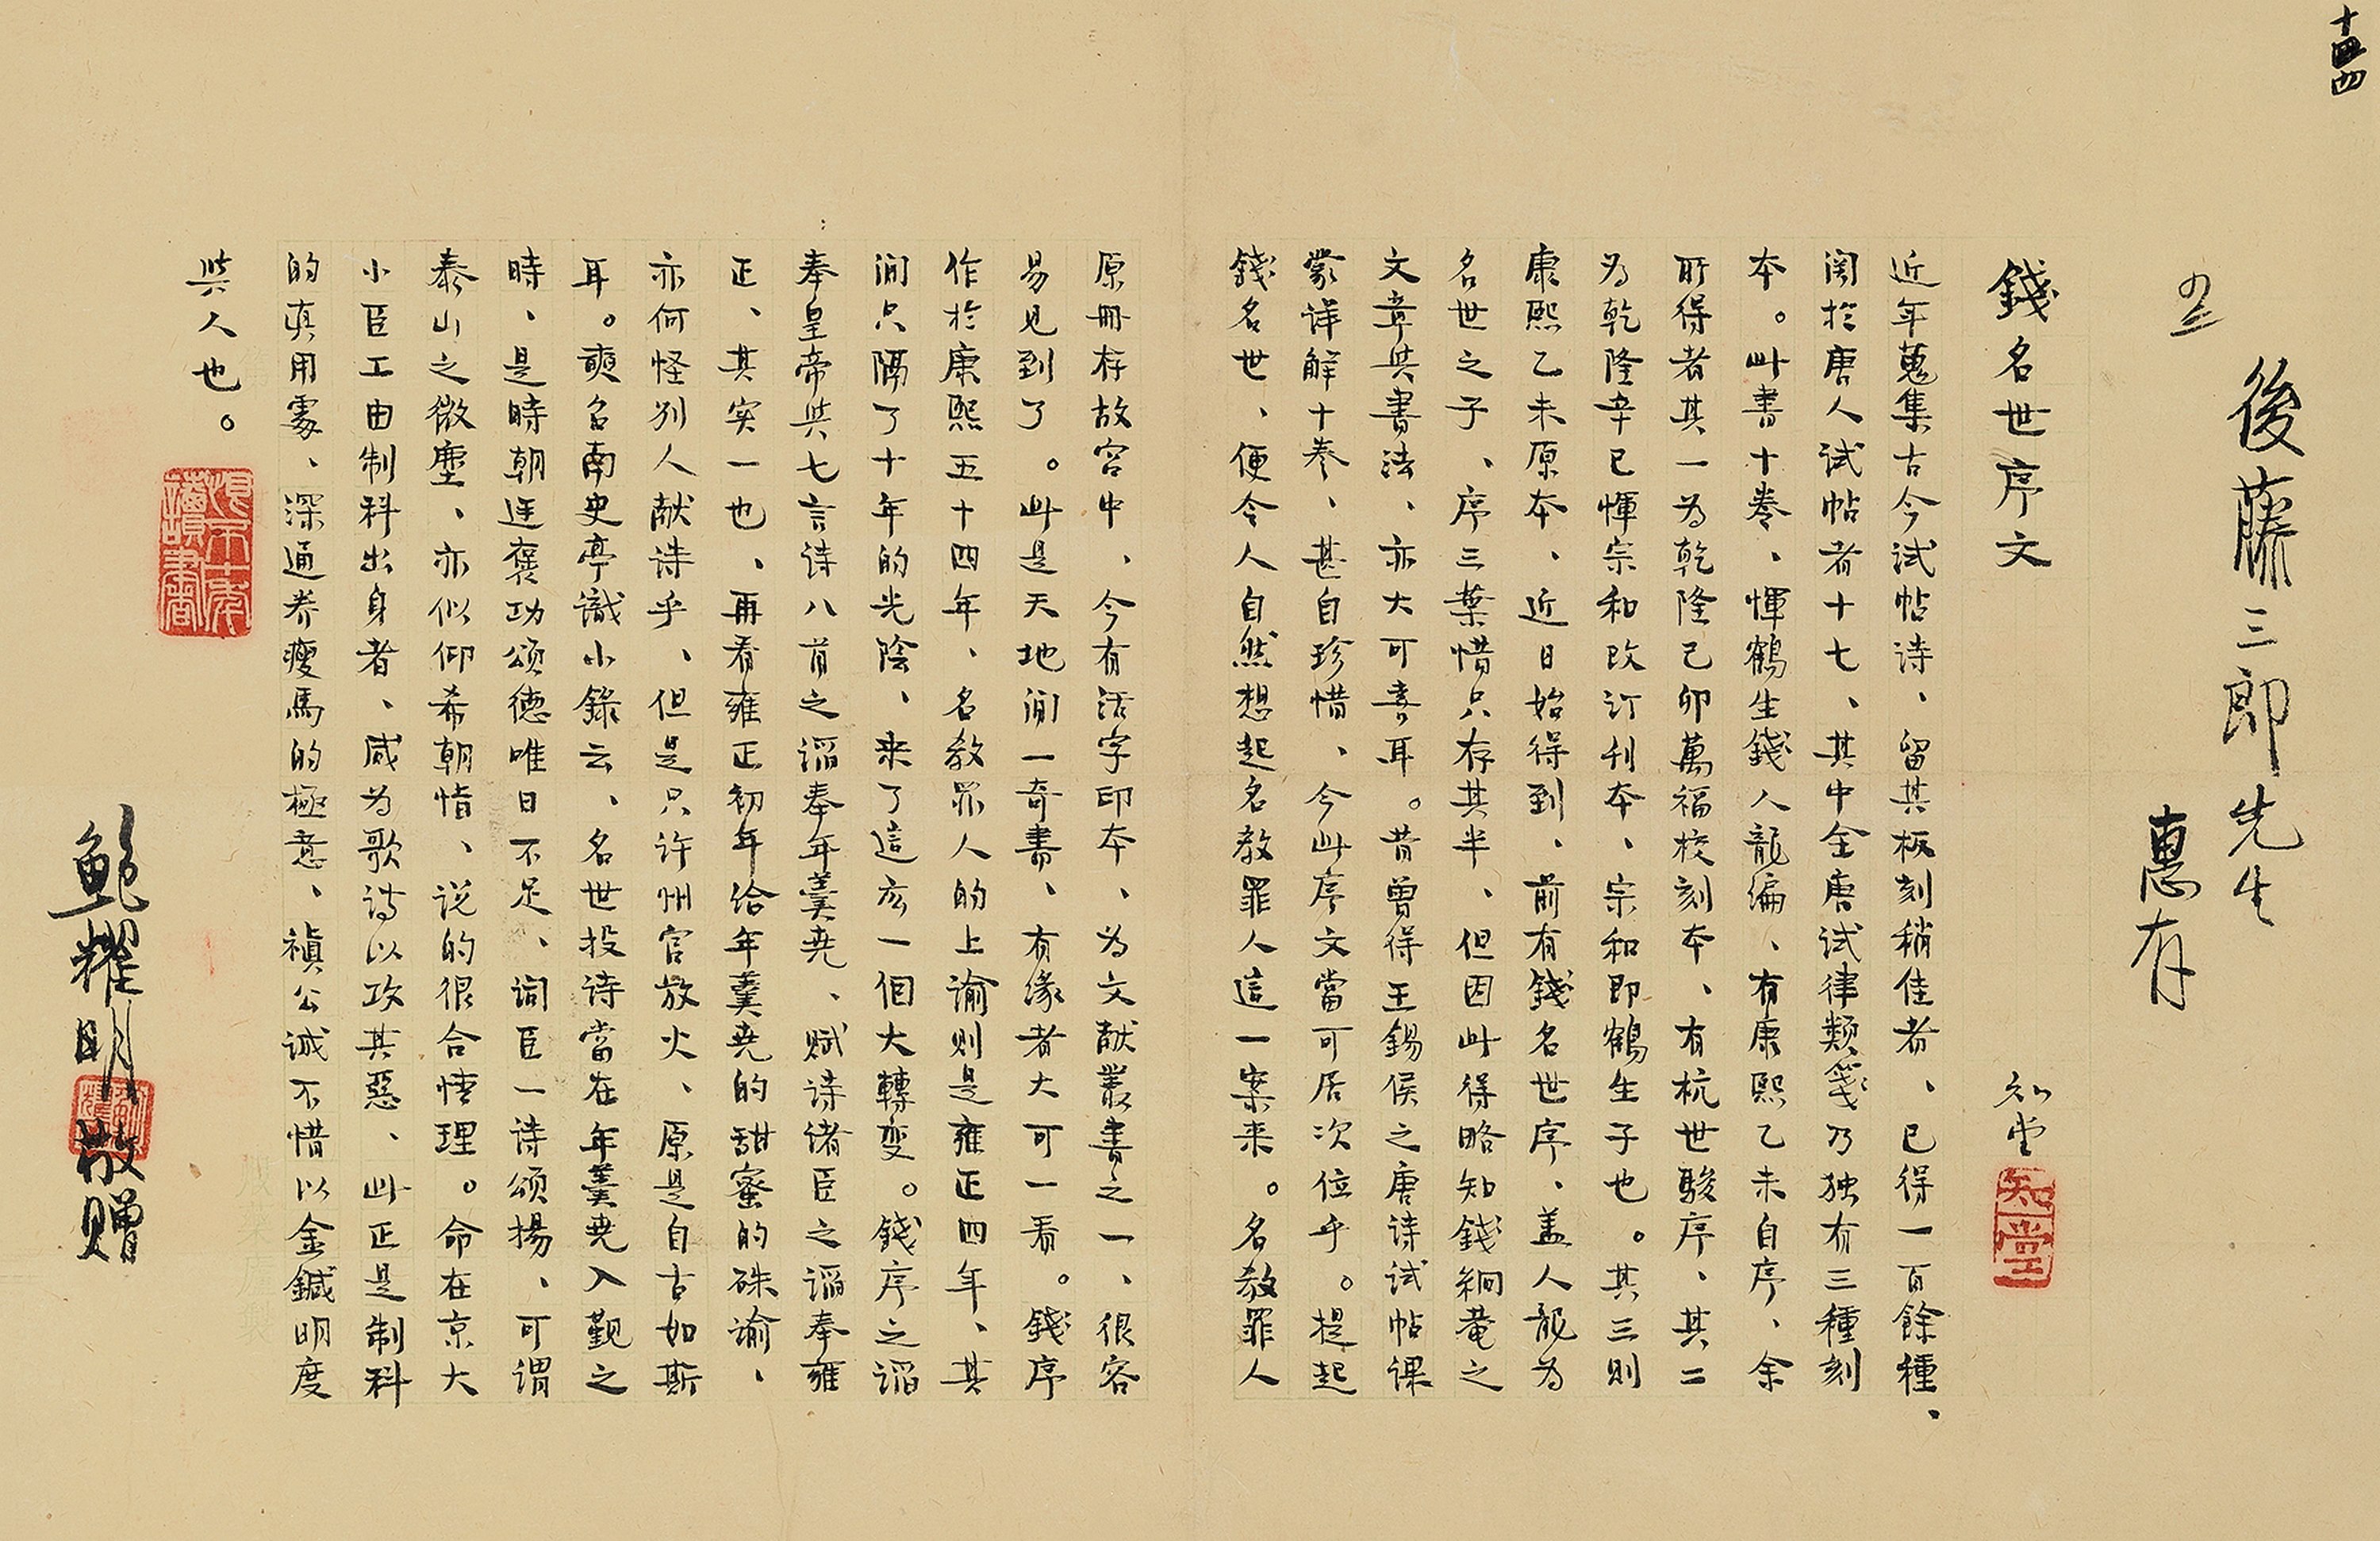 十四
後藤三郎先生
惠有
錢名世序文
知堂
知堂
近年蒐集古今试帖诗、留其板刻稍佳者、已得一百餘種、
関於唐人试帖者十七、其中全唐试律類箋乃独有三種刻
本。此書十卷、惲鶴生錢人龍编、有康熙乙未自序、余
所得者其一為乾隆己卯萬福校刻本、有杭世駿序、其二
为乾隆辛巳惲宗和改订刊本、宗和即鶴生子也。其三则
康熙乙未原本、近日始得到、前有錢名世序、盖人龍为
名世之子、序三葉惜只存其半、但因此得略知錢絅菴之
文章與書法、亦大可喜耳。昔曾得王錫侯之唐诗试帖课
蒙详解十卷、甚自珍惜、今此序文當可居次位乎。提起
錢名世、便令人自然想起名教罪人這一案来。名教罪人
原冊存故宫中、今有活字印本、为文献叢書之一、很容
易见到了。此是天地间一奇書、有缘者大可一看。錢序
作於康熙五十四年、名教罪人的上谕则是雍正四年、其
间只隔了十年的光陰、来了這么一個大轉变。錢序之谄
奉皇帝與七言诗八首之谄奉年羹尭、赋诗诸臣之谄奉雍
正、其实一也、再看雍正初年给年羹尭的甜蜜的硃谕、
亦何怪别人献诗乎、但是只许州官放火、原是自古如斯
耳。奭召南史亭識小錄云、名世投诗當在年羹尭入觐之
時、是時朝廷褒功颂德唯日不足、词臣一诗颂揚、可谓
泰山之微塵、亦似仰希朝恉、说的很合情理。命在京大
小臣工由制科出身者、咸为歌诗以攻其惡、此正是制科
的真用處、深通养瘦馬的極意、禎公诚不惜以金鍼明度
與人也。
鮑耀明敬赠